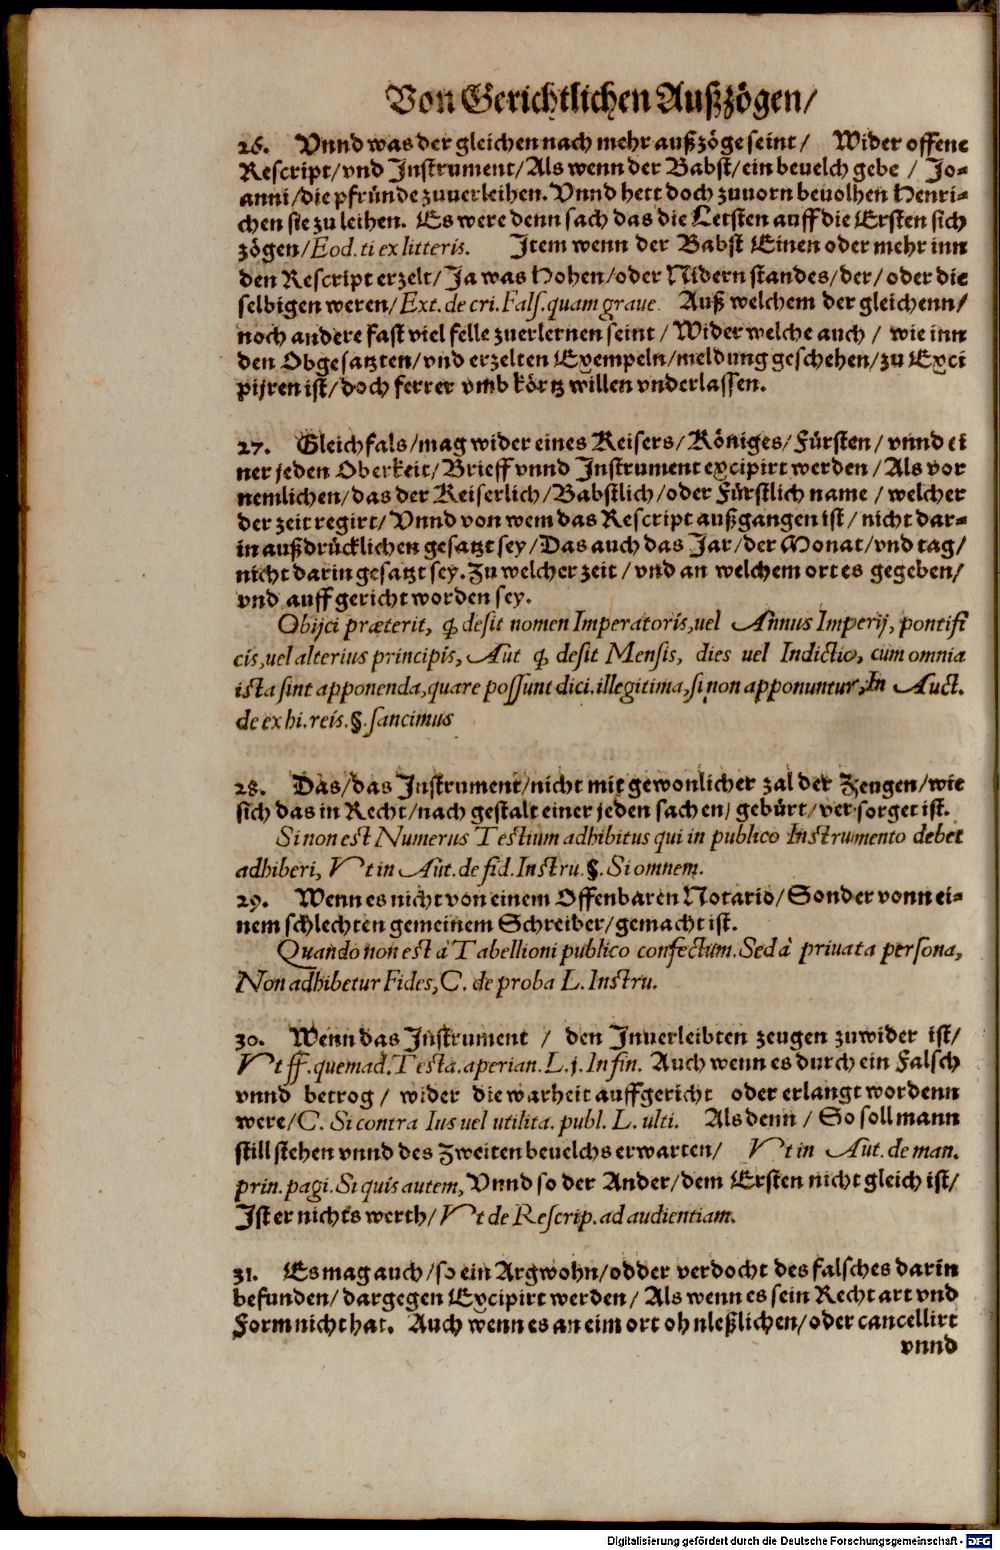 Von Gerichtlichen Außzögen/
26. Vnnd was der gleichen nach mehr außzöge seint/ Wider offene
Rescript/vnd Instrument/Als wenn der Babst/ein beuelch gebe / Jo-
anni/die pfründe zuuerleihen. Vnnd hett doch zuuorn beuolhen Henri-
chen sie zu leihen. Es were denn sach das die Letsten auff die Ersten sich
zögen/Eod. ti ex litteris. Item wenn der Babst Einen oder mehr inn
den Rescript erzelt/Ja was Hohen/oder Nidern standes/der/oder die
selbigen weren/Ext. de cri. Fals. quam graue. Auß welchem der gleichenn/
noch andere fast viel felle zuerlernen seint/Wider welche auch / wie inn
den Obgesatzten/vnd erzelten Exempeln/meldung geschehen/zu Exci
pijren ist/doch ferrer vmb körtz willen vnderlassen.
27. Gleichfals/mag wider eines Keisers/Königes/Fürsten/vnnd ei
ner jeden Oberkeit/Brieff vnnd Instrument excipirt werden/Als vor
nemlichen/das der Keiserlich/Babstlich/oder Fürstlich name / welcher
der zeit regirt/Vnnd von wem das Rescript außgangen ist/nicht dar-
in außdrücklichen gesatzt sey/Das auch das Jar/der Monat/vnd tag/
nicht darin gesatzt sey. Zu welcher zeit/vnd an welchem ort es gegeben/
vnd auffgericht worden sey.
Obijci præterit, ꝙ desit nomen Imperatoris,uel Annus Imperij, pontifi
cis,uel alterius principis, Aut ꝙ desit Mensis, dies uel Indictio, cùm omnia
ista sint apponenda,quare possunt dici.illegitima,si non apponuntur,In Auct.
de exhi. reis.§.sancimus
28. Das/das Instrument/nicht mit gewonlicher zal der Zeugen/wie
sich das in Recht/nach gestalt einer jeden sachen/gebürt/versorget ist.
Si non est Numerus Testium adhibitus qui in publico Instrumento debet
adhiberi, Vt in Aut. de fid. Instru.§. Si omnem.
29. Wenn es nicht von einem Offenbaren Notario/Sonder vonn ei-
nem schlechten gemeinem Schreiber/gemacht ist.
Quando non est à Tabellioni publico confectum. Sed à priuata persona,
Non adhibetur Fides, C. de proba L. Instru.
30. Wenn das Instrument / den Inuerleibten zeugen zuwider ist/
Vt ff. quemad. Testa. aperian. L. j. In fin. Auch wenn es durch ein Falsch
vnnd betrog / wider die warheit auffgericht oder erlangt wordenn
were/C. Si contra Ius uel utilita. publ. L. ulti. Als denn / So soll mann
still stehen vnnd des Zweiten beuelchs erwarten/ Vt in Aut. de man.
prin. pagi. Si quis autem, Vnnd so der Ander/dem Ersten nicht gleich ist/
Ist er nichts werth/Vt de Rescrip. ad audientiam.
31. Es mag auch/so ein Argwohn/odder verdocht des falsches darin
befunden/dargegen Excipirt werden/Als wenn es sein Recht art vnd
Form nicht hat. Auch wenn es an eim ort ohnleßlichen/oder cancellirt
vnnd
Digitalisierung gefördert durch die Deutsche Forschungsgemeinschaft - DFG